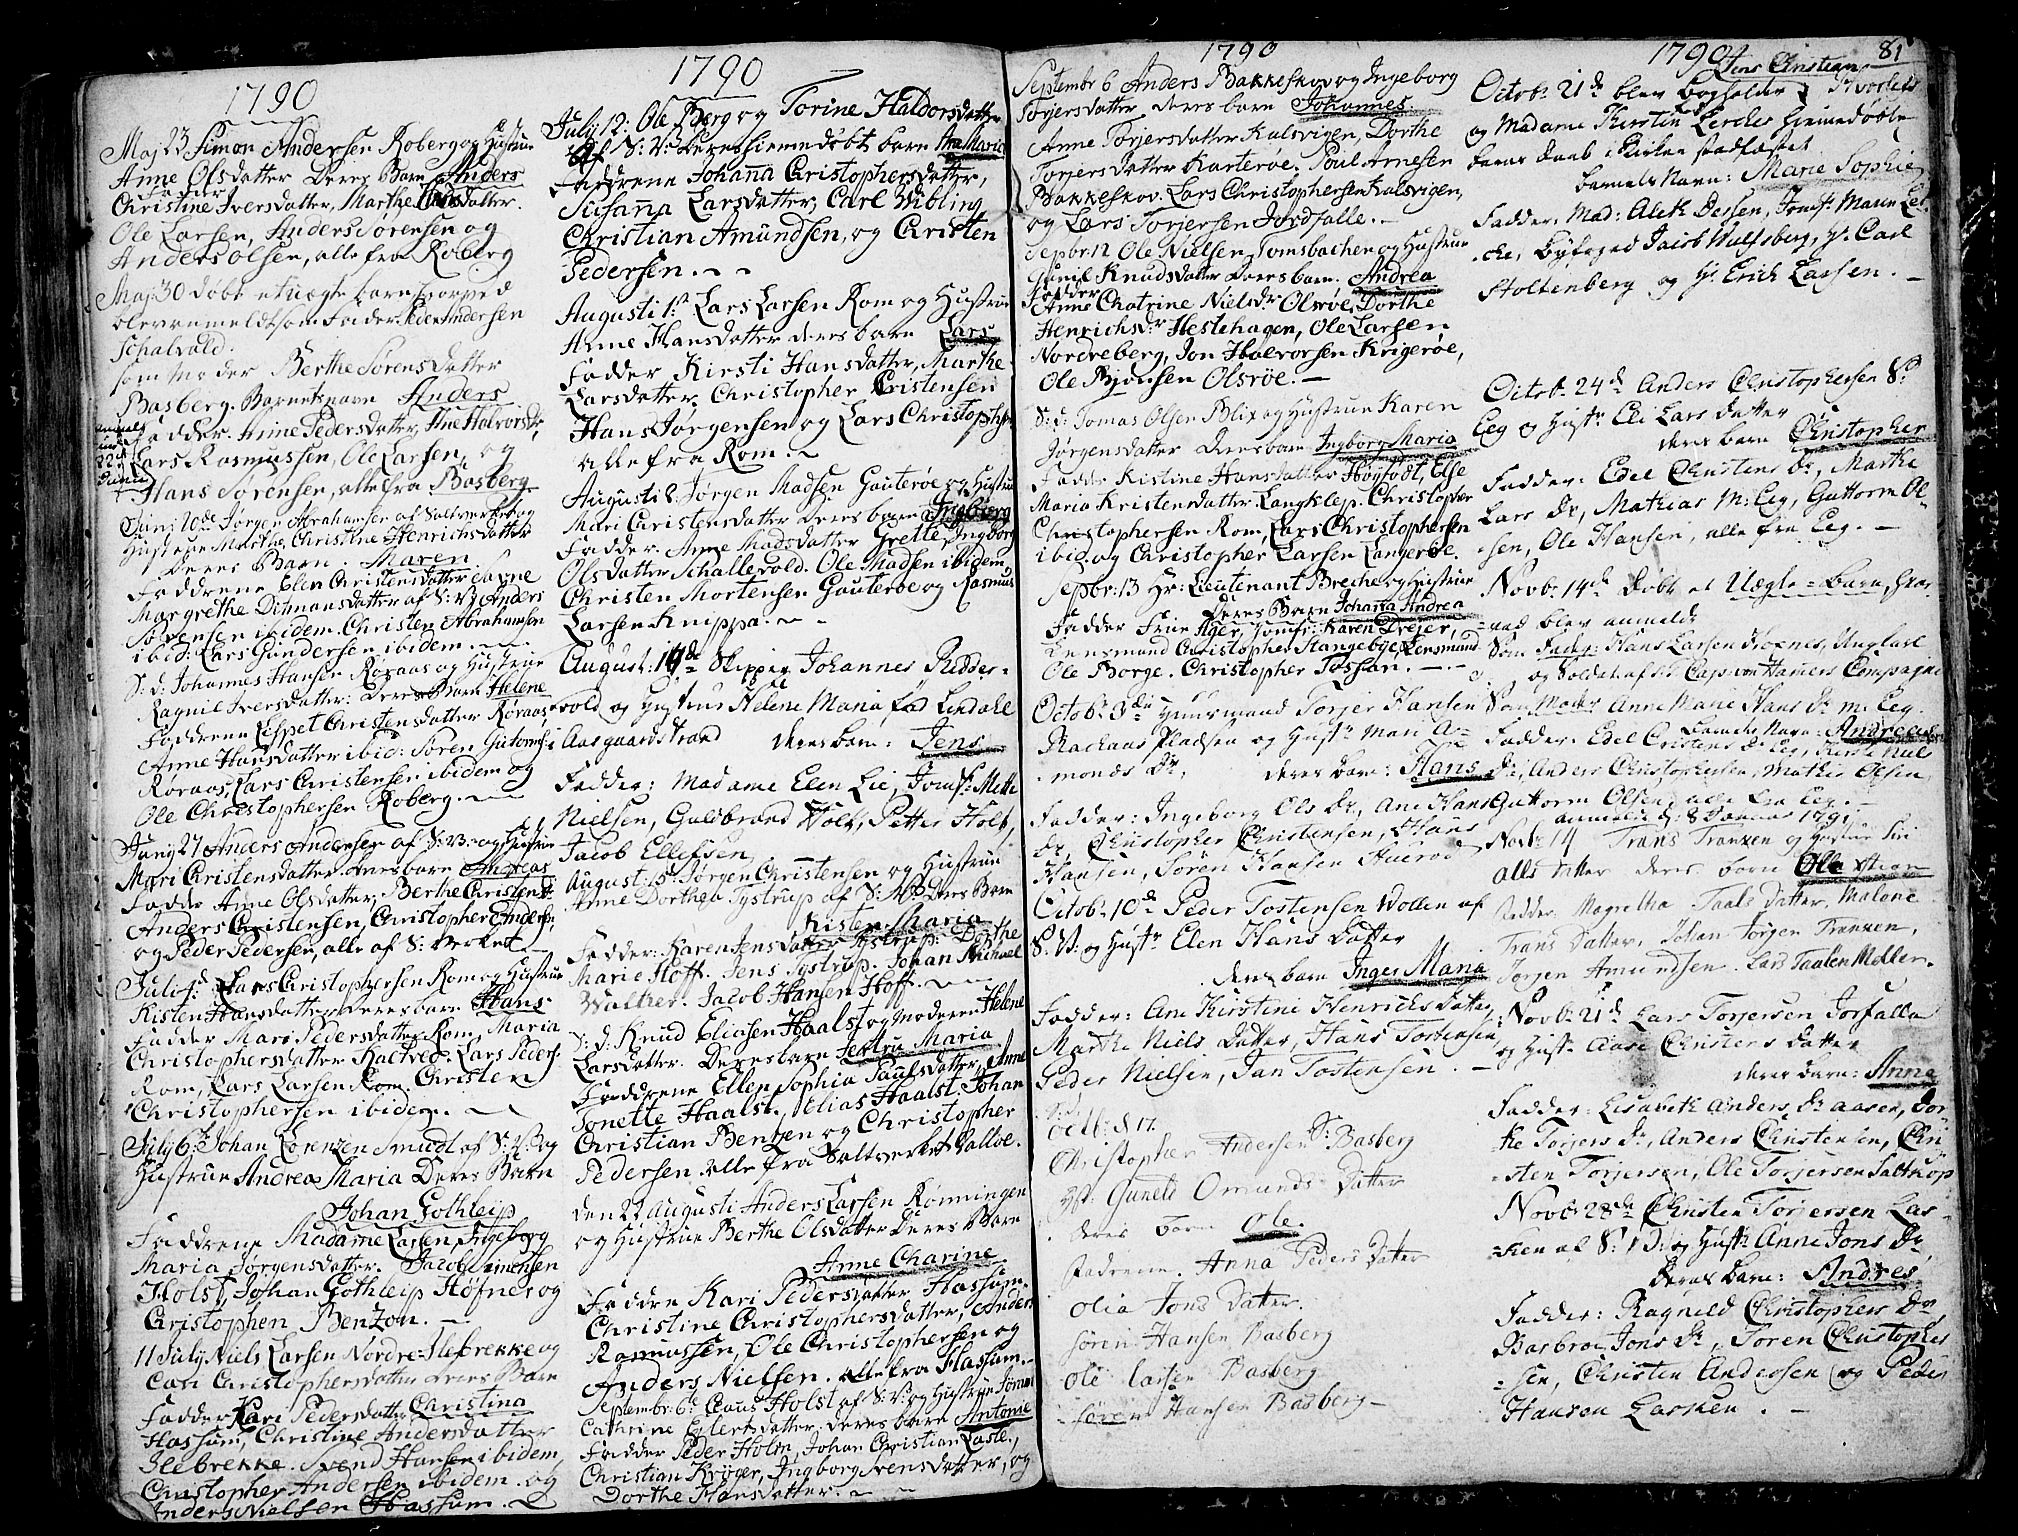 1790
Maj 23 Simon Andersen Roberg og Hustrue
Anne Olsdatter Deres Barn Anders
Fadder
Christine Iversdatter, Marthe Olsdatter.
Ole Larsen, Anders Sørensen og
Anders Olsen, alle fra Roberg
Maj 30 døbt et uægte barn hvorved
blev anmeldt som Fader Peder Andersen
Schalvold.
som Moder Berthe Sørensdatter
Basberg. Barnets navn Anders
Faddere. Anne Pedersdatter, Ane Halvorsdr,
Lars Rasmussen, Ole Larsen, og
Hans Sørensen, alle fra Basberg
Junj 20de Jørgen Abrahamsen af Saltverket og
Hustrue Marthe Christine Henrichsdatter
Deres Barn. Maren
Faddrene Elen Christensdatter
Margrethe Ditmansdatter af S: V: Anders
Sørensen ibidem. Christen Abrahamsen
ibid: Lars Gundersen ibidem.
S: d: Johannes Hansen Røraas og Hustrue
Ragnil Iversdatter: Deres Barn Helene
Faddrene Espet Christensdatter Røraas
Anne Hansdatter ibid: Søren Gutormsen
Røraas, Lars Christensen ibidem og
Ole Christophersen Roberg.
Junj 27 Anders Andersen af S: V. og Hustrue
Mari Christensdatter deres barn Andreas
Fadder Anne Olsdatter, Berthe Christensdr
Anders Christensen, Christopher Endersen,
og Peder Pedersen, alle af S: verket
Juli 4d: Lars Christophersen Rom og Hustrue
Kisten Hansdatter deres barn Hans
Fadder Mari Pedersdatter Rom, Maria
Christophersdatter Raastad: Lars Peders:
Rom, Lars Larsen Rom, Christen
Christophersen ibidem.
July 6: Johan Lorenzen Smidt af S: V: og
Hustrue Andrea Maria Deres Barn
Johan Gothleip
Faddrene Madame Larsen, Ingeborg
Maria Jørgensdatter. Jacob Hinchsen
Holst, Johan Gothleip Høfner og
Cristophen Benzon.
11 July Niels Larsen Nordre Ilebrekke og
Cari Christophersdatter Deres Barn
Fadder Kari Pedersdatter Christina
Hassum, Christine Andersdatter
Ilebrekke. Svend Hansen ibidem,
Christopher Andersen ibidem. og
Anders Nielsen Hassum.
1790
July 12: Ole Berg og Torine Haldorsdatter
af S: V: Deres hiemedøbt barn Ana Maria
Faddrene Johanna Christophersdatter,
Susanna Larsdatter, Carl Wibling
Christian Amundsen, og Cristen
Pedersen.
Augusti 1: Lars Larsen Rom og Hustrue
Anne Hansdatter deres barn Lars
Fadder Kirsti Hansdatter, Marthe
Larsdatter, Christopher Cristensen
Hans Jørgensen og Lars Christophers:
alle fra Rom.
Augusti 8 Jørgen Madsen Gauterøe og Hustrue
Mari Christensdatter deres barn Ingborg
Fadder: Anne Madsdatter Grette, Ingborg
Olsdatter Schallevold. Ole Madsen ibidem
Christen Mortensen Gauterøe og Rasmus
Larsen Knippa.
August: 14de Skipper Johannes Ridder-
vold og Hustrue Helene Maria fød Lindahl
Aasgaardstrand deres barn: Jens
Fadder: Madame Elen Lie, Jomf: Mette
Nielsen, Guldbrand Holt, Petter Holt,
Jacob Ellefsen
August: 15 Jørgen Christensen og Hustrue
Anne Dorthea Tystrup af S: V: Deres Barn
Kisten Maria
Fadder: Karen Jensdatter Tystrup: Dorthe
Marie Hoff. Jens Tystrup. Johan Michael
Walther. Jacob Hansen Hoff.
S: d: Knud Eliasen Haalst og Moderen Helene
Larsdatter. Deres barn Jertru Maria
Faddrene Ellen Sophia Paulsdatter, Anne
Tonette Haalst. Elias Haalst. Johan
Christian Bentzen og Christopher
Pedersen. alle fra Saltverket Walløe.
den 22 Augusti Anders Larsen Rønningen
og Hustrue Berthe Olsdatter Deres Barn
Anne Charine
Faddre Kari Pedersdatter Hassum.
Christine Christophersdatter, Anders
Rasmussen, Ole Christophersen og
Anders Nielsen. alle fra Hassum.
Septembr 6: Claus Holst af S: V: og Hustrue
Cathrine Eylertsdatter deres barn Antonie
Fadder Peder Holm, Johan Christian Lasle,
Christian Krøger, Ingborg Svensdatter, og
Dorthe Hansdatter.
1790
Septembr 6 Anders Bakkeskov og Ingeborg
Torjersdatter deres barn Johannes
Anne Torjersdatter Kalsvigen, Dorthe
Torjersdatter Karterøe. Poul Arnesen
Bakkeskov. Lars Christophersen Kalsvigen,
og Lars Torjersen Jordfalle.
Sepbr 12 Ole Nielsen Tomsbachen og Hustrue
Gunil Knudsdatter Deres barn. Andrea
Fadder
Anne Chatrine Nielsdr Olsrøe, Dorthe
Henrichsdr Hestehagen, Ole Larsen
Nordreberg, Jon Halvorsen Krigerøe,
Ole Bjønsen Olsrøe.
S: d: Tomas Olsen Blix og Hustrue Karen
Jørgensdatter Deres barn Ingborg Maria
Faddr Kistine Hansdatter Høyfødt, Else
Maria Kristensdatter Langklep. Christopher
Christophersen Rom, Lars Christophersen
ibid. og Christopher Larsen Langerøe.
Sepbr: 13 Hr: Lieutenant Brecher og Hustrue
Deres Barn Johana Andrea
Fadder Frue Ager, Jomfr: Karen Drejer,
Lensmand Christopher Stangebye, Lensmand
Ole Borge. Christopher Tossan.
Octobr 3die Huusmand Torjer Hansen
Rachaas Pladsen og Hustr: Mari A-
monds Dr, deres barn: Hans
Fadder: Ingeborg Ols Dr, Ane Hans
Dr, Christopher Christensen, Hans
Hansen, Søren Hansen Huerod
Octobr 10de Peder Tostensen Wollen af
S: V: og Hustr: Elen Hans Datter
deres barn Inger Maria
Fadder: Ane Kirstine Henrichs Datter,
Marthe Niels Datter, Hans Tostensen,
Peder Nielsen, Jan Tostensen.
Octb: d 17.
Christopher Andersen S: Basberg
Hst: Gunele Omunds Datter
deres barn Ole.
Fadrene. Anna Peders Datter
Olia Jons Datter.
Søren Hansen Basberg
Ole Larsen Basberg
Søren Hansen Basberg
1790 81
Jens Christian
Octobr 21de blev bogholder Kvorlds
og Madame Kirstin Lerches hiemedøbte
barns daab i Kirken stadfæstet
barnets Navn: Marie Sophie
Fadder: Mad: Alet Dessen, Jomf: Maren Ler-
che, Byfoged Jacob Wulfsberg, Hr. Carl
Stoltenberg og Hr. Erich Larsen.
Octobr 24de Anders Christophersen S:
Eeg og Hustr: Eli Lars Datter
deres barn Christopher
Fadder: Edel Christens Dr, Marthe
Lars Dr, Mathias M: Eeg, Guttorm Ol-
sen, Ole Hansen, alle fra Eeg.
Novbr 14de Døbt et Uægte-Barn, hvor-
ved blev anmeldt
Som Fader: Hans Larsen Hornes, Ungkarl
og Soldat af Hr Cap: von Hamers Compagnie
Som Moder Anne Marie Hans Dr M: Eeg.
Barnets Navn: Andreas
Fadder: Edel Cristens Dr Eeg, Karen Niels
Dr, Anders Christophersen, Mathis Olsen,
Guttorm Olsen, alle fra Eeg.
anmeldt d: 8 Januar 1791
Novbr 14 Frans Franzen og Hustrue Siri
alls datter deres barn Ole
Fadder: Magretha Taals Datter, Malene
Frans Datter, Johan Jørgen Franzen,
Jørgen Amundsen. Lars Taalen Møller.
Novbr 21de Lars Torjersen Jorfalla
og Hustr: Aase Christens Datter
deres barn: Anna
Fadder: Lisabeth Anders Dr Aasen, Dor-
the Torjers Dr, Anders Christensen, Chri-
sten Torjersen, Ole Torjersen Saltkop
Novbr 28de Christen Torjersen Las-
ken af S: V: og Hustr: Anne Jons Dr
Deres barn: Andres
Fadder: Ragnild Christophers Dr
Basbroe, Jons Dr, Søren Christopher-
sen, Christen Andersen og Peder
Hansen Lasken.